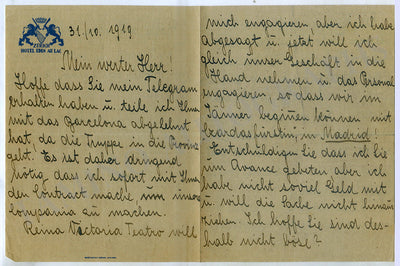 ZÜRICH
HOTEL EDEN AU LAC
31./10. 1919
Mein werter Herr!
Hoffe dass Sie mein Telegram
erhalten haben u. teile ich Ihnen
mit das Barcelona abgelehnt
hat, da die Truppe in die Provinz
geht. Es ist daher dringend
nötig dass ich sofort mit Ihnen
den Contract mache, um unser
compania zu machen.
Reina Victoria Teatro will
mich engagieren aber ich habe
abgesagt u. jetzt will ich
gleich unser Geschäft in die
Hand nehmen u. das Personal
engagieren, so dass wir im
Jänner beginen können mit
Czardasfürstin, in Madrid!
Entschuldigen Sie dass ich Sie
um Avance gebeten aber ich
habe nicht soviel Geld mit
u. will die Sache nicht hinaus
ziehen. Ich hoffe Sie sind des-
halb nicht böse?